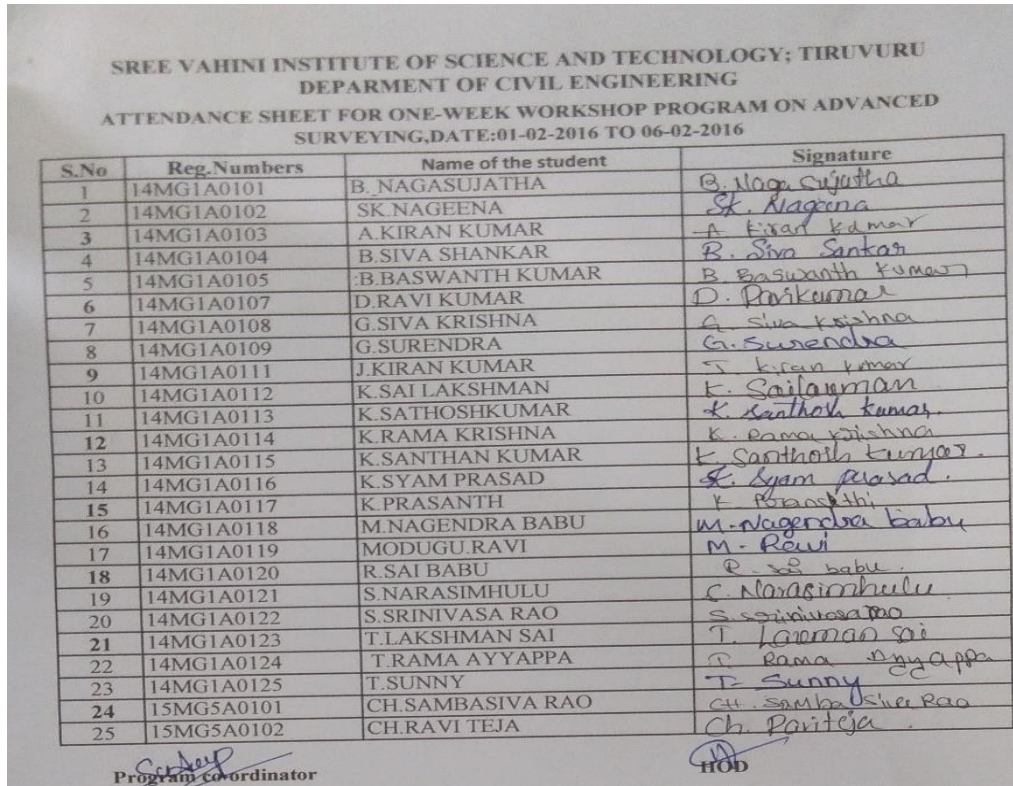 SREE VAHINI INSTITUTE OF SCIENCE AND TECHNOLOGY; TIRUVURU
DEPARMENT OF CIVIL ENGINEERING
ATTENDANCE SHEET FOR ONE-WEEK WORKSHOP PROGRAM ON ADVANCED
SURVEYING,DATE:01-02-2016 TO 06-02-2016
S.No Reg.Numbers Name of the student Signature
1 14MG1A0101 B. NAGASUJATHA B. Naga Sujatha
2 14MG1A0102 SK.NAGEENA SK. Nageena
3 14MG1A0103 A.KIRAN KUMAR A kiran kumar
4 14MG1A0104 B.SIVA SHANKAR B. Siva Sankar
5 14MG1A0105 :B.BASWANTH KUMAR B. Baswanth kumar
6 14MG1A0107 D.RAVI KUMAR D. Ravikumar
7 14MG1A0108 G.SIVA KRISHNA G. Siva krishna
8 14MG1A0109 G.SURENDRA G. Surendra
9 14MG1A0111 J.KIRAN KUMAR J. kiran kumar
10 14MG1A0112 K.SAI LAKSHMAN K. Sailaxman
11 14MG1A0113 K.SATHOSHKUMAR K. Santhosh kumar.
12 14MG1A0114 K.RAMA KRISHNA K. Rama krishna
13 14MG1A0115 K.SANTHAN KUMAR K. Santhosh kumar.
14 14MG1A0116 K.SYAM PRASAD K. Syam prasad.
15 14MG1A0117 K.PRASANTH K
16 14MG1A0118 M.NAGENDRA BABU M. Nagendra babu
17 14MG1A0119 MODUGU.RAVI M. Ravi
18 14MG1A0120 R.SAI BABU R. sai babu.
19 14MG1A0121 S.NARASIMHULU S. Narasimhulu
20 14MG1A0122 S.SRINIVASA RAO S. srinivasa rao
21 14MG1A0123 T.LAKSHMAN SAI T. Laxman sai
22 14MG1A0124 T.RAMA AYYAPPA T. Rama Ayyappa
23 14MG1A0125 T.SUNNY T. Sunny
24 15MG5A0101 CH.SAMBASIVA RAO CH. Samba Siva Rao
25 15MG5A0102 CH.RAVI TEJA Ch. Raviteja.
Program co-ordinator HOD